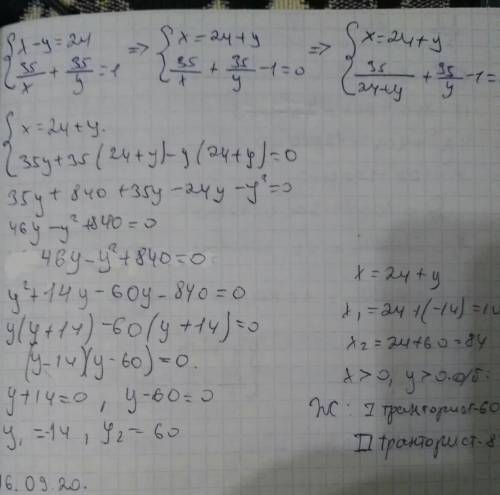 {x-y=24 => {x=24+y => {x=24+y
{35/x + 35/y =1 {35/x + 35/y -1=0 {35/24+y + 35/y -1=
{x=24+y.
{35y+35(24+y)-y(24+y)=0
35y+840+35y-24y-y²=0
46y-y²+840=0
46y-y²+840=0
y²+14y-60y-840=0
y(y+14)-60(y+14)=0
(y-14)(y-60)=0.
y+14=0, y-60=0
y₁=14, y₂=60
16.09.20.
x=24+y
x₁=24+(-14)=10
x₂=24+60=84
x>0, y>0.
Ж: I тракторист-60
II тракторист-8